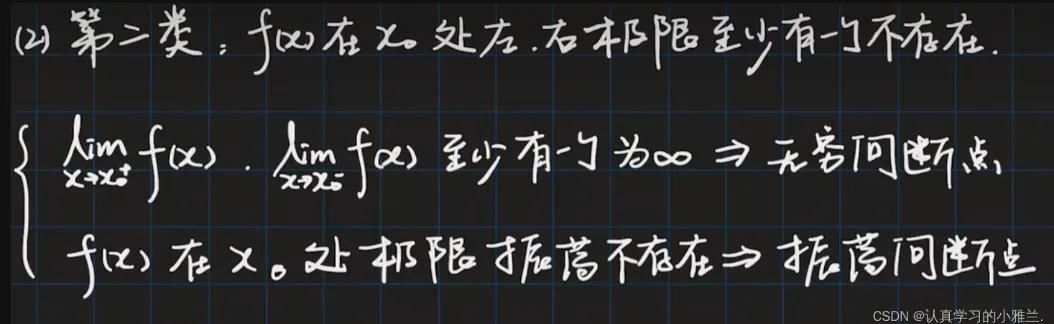 (2) 第二类：f(x)在x₀处左.右极限至少有一个不存在.
lim x→x₀⁺ f(x) . lim x→x₀⁻ f(x) 至少有一个为∞ ⇒ 无穷间断点
f(x)在x₀处极限振荡不存在⇒振荡间断点
CSDN @认真学习的小雅兰.